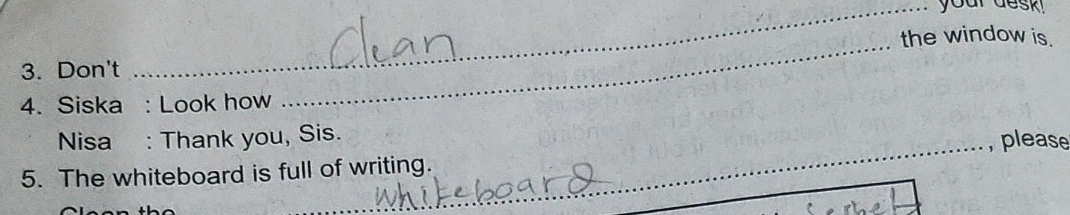 your desk!
3. Don't ........ Clean ........
4. Siska : Look how ........ the window is.
Nisa : Thank you, Sis.
5. The whiteboard is full of writing.
Clean the whiteboard ........, please